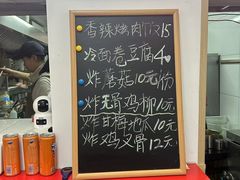 香辣烤肉竹12 15
冷面卷豆腐4
炸蘑菇10元份
炸无骨鸡柳10元
炸甘梅地瓜10元
炸鸡叉骨12元